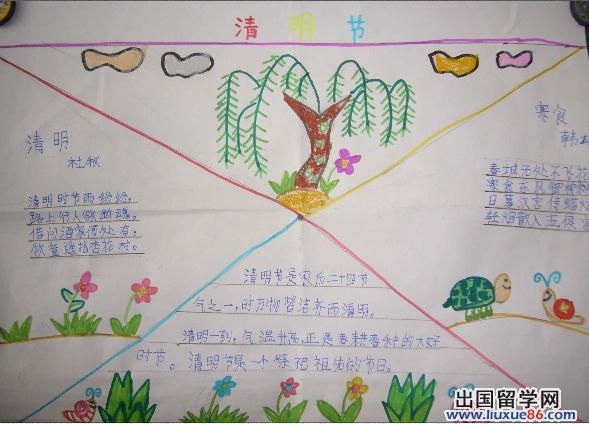 清明节
清明
杜牧
清明时节雨纷纷,
路上行人欲断魂。
借问酒家何处有,
牧童遥指杏花村。
寒食
韩
春城无处不飞花
寒食东风御柳
日暮汉宫传蜡
轻烟散入五侯
清明节是农历二十四节
气之一,时万物皆洁齐而清明。
清明一到,气温升高,正是春耕春种的大好
时节。清明节是一个祭祀祖先的节日。
出国留学网
www.liuxue86.com